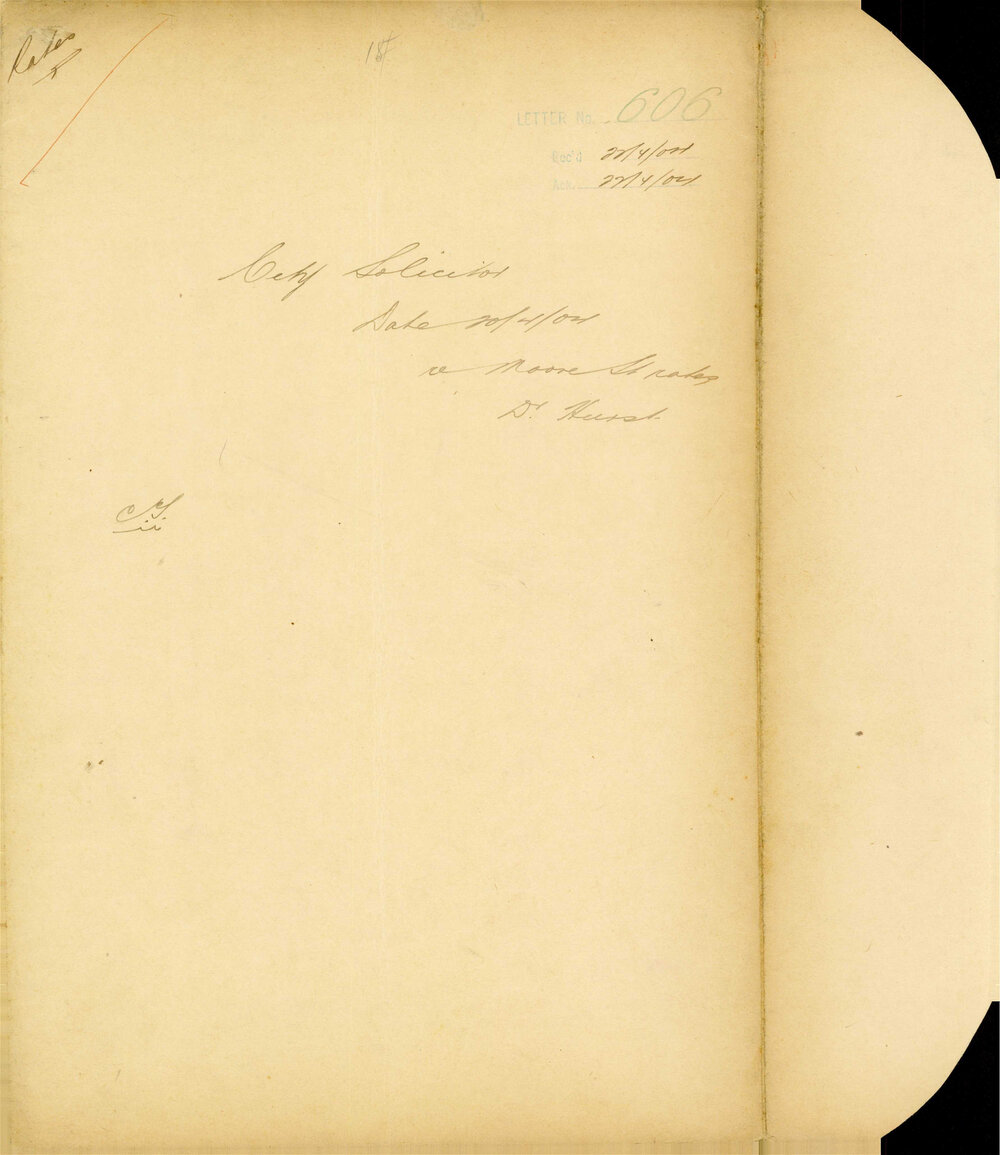 Rates
LETTER No. 606
Rec'd 22/4/04
Ack. 22/4/04
City Solicitor
Date 20/4/04
re Moore St rates
Dr. Hurst